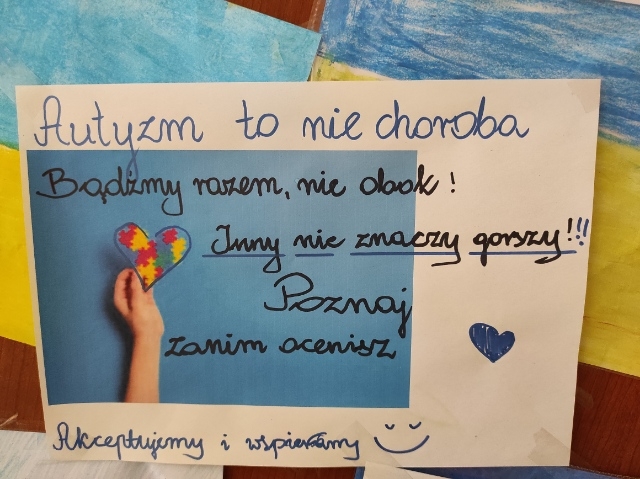 Autyzm to nie choroba
Bądźmy razem, nie obok!
Inny nie znaczy gorszy!!!
Poznaj
zanim ocenisz
Akceptujemy i wspieramy